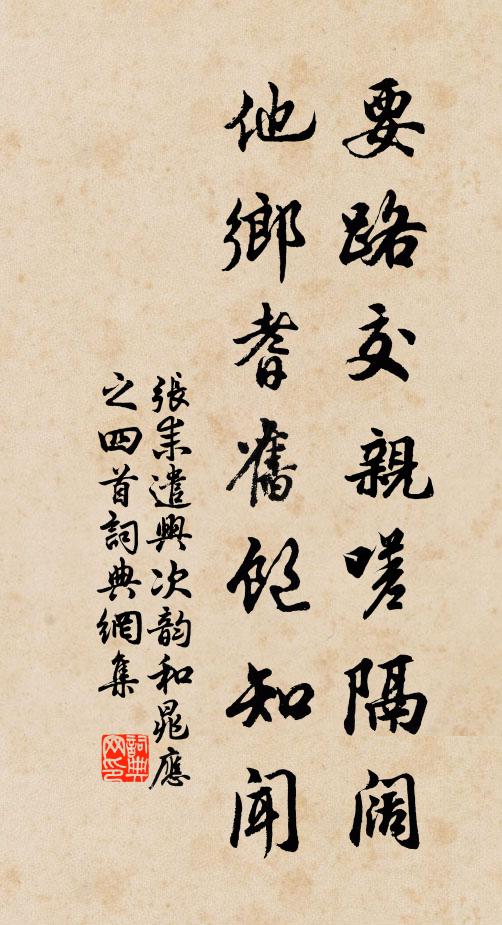 要路交親嗟隔闊
他鄉耆舊飽知聞
張耒遣興次韵和晁應
之四首詞典網集
詞典
网印